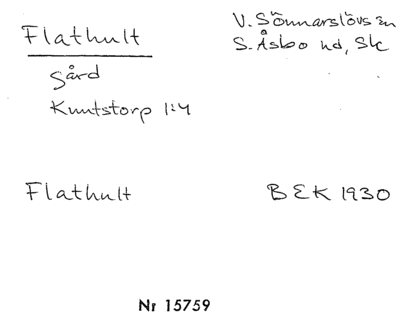 Flathult
V. Sönnarslövs sn
S. Åsbo hd, Sk
gård
Knutstorp 1:4
Flathult
BEK 1930
Nr 15759